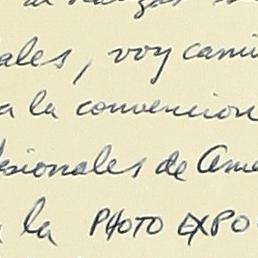 ales, voy cami
a la convencion
esionales de Ame
la PHOTO EXPO